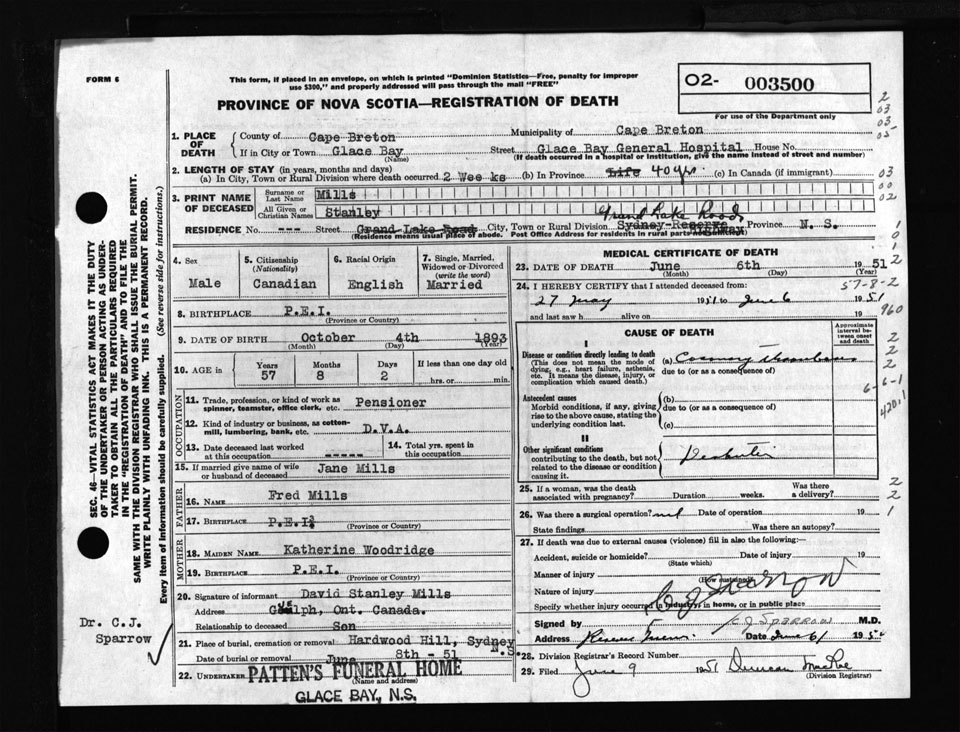 FORM 6
This form, if placed in an envelope, on which is printed "Dominion Statistics—Free, penalty for improper
use $300," and properly addressed will pass through the mail "FREE"
O2- 003500
For use of the Department only
PROVINCE OF NOVA SCOTIA—REGISTRATION OF DEATH
1. PLACE OF DEATH
County of Cape Breton Municipality of Cape Breton
If in City or Town Glace Bay Street Glace Bay General Hospital House No.
(Name) (If death occurred in a hospital or institution, give the name instead of street and number)
2. LENGTH OF STAY (in years, months and days)
(a) In City, Town or Rural Division where death occurred 2 Weeks (b) In Province Life 40 yrs. (c) In Canada (if immigrant)
3. PRINT NAME OF DECEASED
Surname or Last Name Mills
All Given or Christian Names Stanley
Grand Lake Road
RESIDENCE No. --- Street Grand Lake Road City, Town or Rural Division Sydney-Reserve Highway Province N. S.
(Residence means usual place of abode. Post Office Address for residents in rural parts
4. Sex
Male
5. Citizenship
(Nationality)
Canadian
6. Racial Origin
English
7. Single, Married, Widowed or Divorced
(write the word)
Married
8. BIRTHPLACE P.E.I.
(Province or Country)
9. DATE OF BIRTH October 4th 1893
(Month) (Day) (Year)
10. AGE in
Years 57
Months 8
Days 2
If less than one day old
hrs. or min.
OCCUPATION
11. Trade, profession, or kind of work as
spinner, teamster, office clerk, etc. Pensioner
12. Kind of industry or business, as cotton-
mill, lumbering, bank, etc. D.V.A.
13. Date deceased last worked
at this occupation -----
14. Total yrs. spent in
this occupation
15. If married give name of wife
or husband of deceased Jane Mills
FATHER
16. NAME Fred Mills
17. BIRTHPLACE P.E.I.
(Province or Country)
MOTHER
18. MAIDEN NAME Katherine Woodridge
19. BIRTHPLACE P.E.I.
(Province or Country)
20. Signature of informant David Stanley Mills
Address Guelph, Ont. Canada.
Relationship to deceased Son
21. Place of burial, cremation or removal Hardwood Hill, Sydney N.S.
Date of burial or removal June 8th - 51
22. UNDERTAKER PATTEN'S FUNERAL HOME
(Name and address)
GLACE BAY, N.S.
MEDICAL CERTIFICATE OF DEATH
23. DATE OF DEATH June 6th 1951
(Month) (Day) (Year)
24. I HEREBY CERTIFY that I attended deceased from:
27 May 1951 to June 6 1951
and last saw h alive on 19
CAUSE OF DEATH
Approximate interval between onset and death
I
Disease or condition directly leading to death
(This does not mean the mode of
dying, e.g., heart failure, asthenia,
etc. It means the disease, injury, or
complication which caused death.)
(a) Coronary Thrombosis
due to (or as a consequence of)
Antecedent causes
Morbid conditions, if any, giving
rise to the above cause, stating the
underlying condition last.
(b)
due to (or as a consequence of)
(c)
II
Other significant conditions
contributing to the death, but not
related to the disease or condition
causing it.
25. If a woman, was the death
associated with pregnancy? Duration weeks. Was there a delivery?
26. Was there surgical operation? nil Date of operation 19
State findings Was there an autopsy?
27. If death was due to external causes (violence) fill in also the following:—
Accident, suicide or homicide? Date of injury 19
(State which)
Manner of injury
(How sustained)
Nature of injury
Specify whether injury occurred in industry, in home, or in public place
C J Sparrow
Signed by C J Sparrow M.D.
Address Reserve Mines Date June 6 195
28. Division Registrar's Record Number
29. Filed June 9 1951 Duncan MacRae
(Division Registrar)
2
03
03
05
03
00
02
1
0
1
2
57-8-2
960
2
2
2
6-6-1
4201
2
2
1
SEC. 46—VITAL STATISTICS ACT MAKES IT THE DUTY
OF THE UNDERTAKER OR PERSON ACTING AS UNDER-
TAKER TO OBTAIN ALL THE PARTICULARS REQUIRED
IN THE "REGISTRATION OF DEATH" AND TO FILE THE
SAME WITH THE DIVISION REGISTRAR WHO SHALL ISSUE THE BURIAL PERMIT.
WRITE PLAINLY WITH UNFADING INK. THIS IS A PERMANENT RECORD.
Every item of information should be carefully supplied. (See reverse side for instructions.)
Dr. C.J.
Sparrow